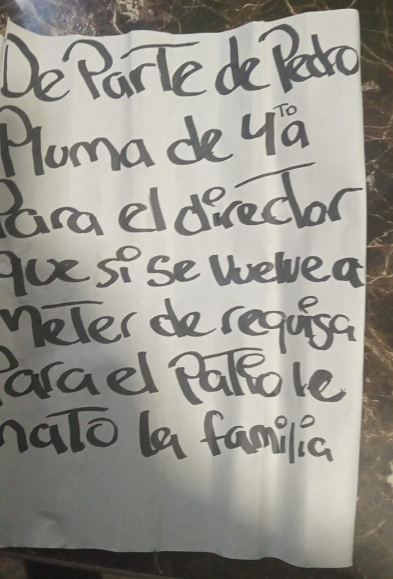 De Parte de Pedro
Pluma de 4ᵀᵒa
Para el director
que si se vuelve a
meter de requisa
Para el Patio le
mato la familia